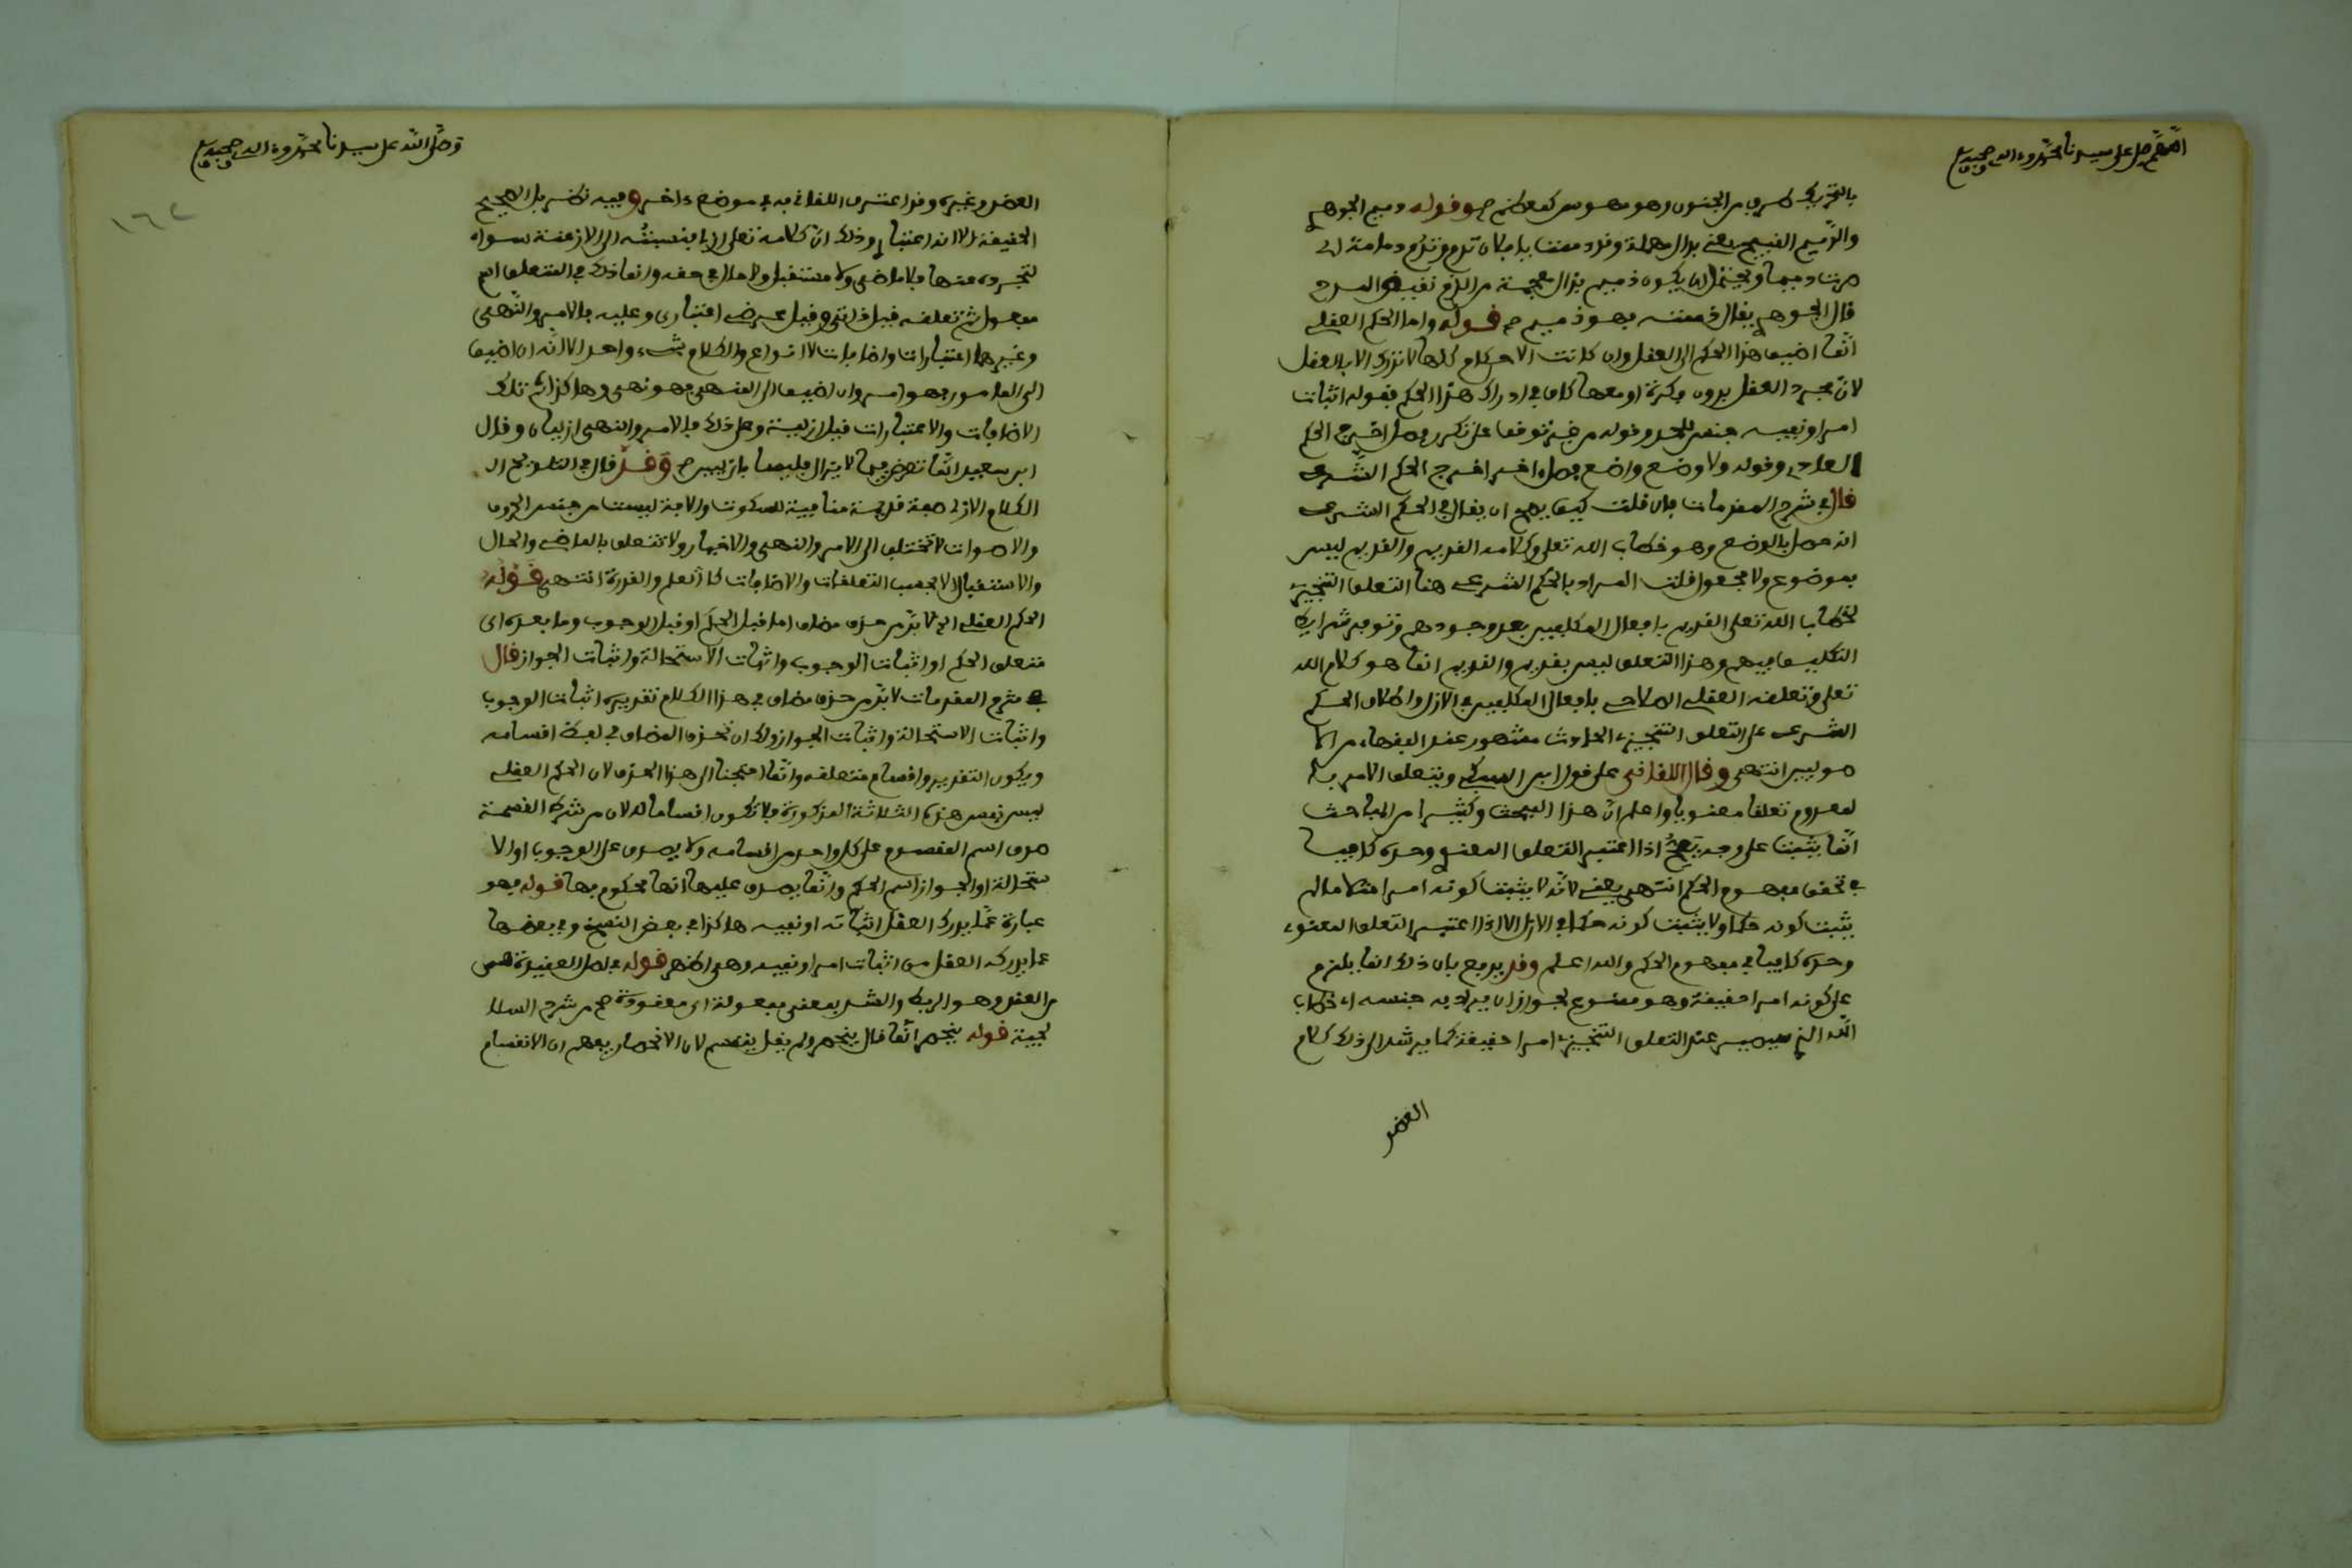 اللهم صل على سيدنا محمد وءاله وصحبه
بالتحريك ضرب من الجنون وهو مهوس كمعظم ص وقوله دميم الجوهر
والدميم القبيح يعنى بدال مهملة وقد دممت يا فلان تدم وتدم دمامة اى
صرت دميما ويحتمل ان يكون ذميم بذال معجمة من الذم نقيض المدح
قال الجوهر يقال ذممته فهو ذميم ص قوله واما الحكم العقلي
انما اضيف هذا الحكم الى العقل وان كانت الاحكام كلها لا تدرك الا بالعقل
لان مجرد العقل بدون فكرة او معها كاف في ادراك هذا الحكم فقوله اثبات
امر او نفيه جنس للحد وقوله من غير توقف على تكرر فصل اخرج الحكم
العادي وقوله ولا وضع واضع فصل ءاخر اخرج الحكم الشرعي
قال في شرح المقدمات فان قلت كيف يصح ان يقال في الحكم الشرعي
انه حصل بالوضع وهو خطاب الله تعلى وكلامه القديم والقديم ليس
بموضوع ولا مجعول قلت المراد بالحكم الشرعي هنا التعلق التنجيزي
لخطاب الله تعلى القديم بافعال المكلفين بعد وجودهم وتوفر شرايط
التكليف فيهم وهذا التعلق ليس بقديم والقديم انما هو كلام الله
تعلى وتعلقه العقلي الصلاحي بافعال المكلفين في الازل واطلاق الحكم
الشرعي على التعلق التنجيزي الحادث مشهور عند الفقهاء من الا
صوليين انتهى وقال اللقاني على قول ابن السبكي ويتعلق الامر بال
لمعدوم تعلقا معنويا واعلم ان هذا المبحث وكثيرا من المباحث
انما يثبت على وجه يصح اذا اعتبر التعلق المعنوي وحده كافيا
في تحقق مفهوم الحكم انتهى يعنى لانه لا يثبت كونه امرا مثلا ما لم
يثبت كونه حكما ولا يثبت كونه حكما في الازل الا اذا اعتبر التعلق المعنوي
وحده كافيا في مفهوم الحكم والله اعلم وقد يدفع بان ذلك انما يلزم
على كونه امرا حقيقة وهو ممنوع لجواز ان يراد به جنسه اى خطاب
الله الذي سيصير عند التعلق التنجيزي امرا حقيقة كما يرشد الى ذلك كلام
العضد
وصلى الله على سيدنا محمد وءاله وصحبه
١٦٢
العضد وغيره وقد اعترف اللقاني به في موضع ءاخر وفيه نظر بل الصحيح
الحقيقة الا انه اعتباري وذلك ان كلامه تعلى ازلي فنسبته الى الازمنة سواء
لتجرده عنها فلا ماضى ولا مستقبل ولا حال في حقه وانما ذلك في المتعلق اسم
مفعول ثم تعلقه قيل ذاتي وقيل عرضي اعتباري وعليه فالامر والنهى
وغيرهما اعتبارات واضافات لا انواع والكلام شيء واحد الا انه ان اضيف
الى المامور فهو امر وان اضيف الى المنهى فهو نهى وهاكذا ثم تلك
الاضافات والاعتبارات قيل ازلية وعلى ذلك فالامر والنهى ازليان وقال
ابن سعيد انما تعرض فيما لا يزال فليسا بازليين ص وقد قال في التلويح ان
الكلام الازلي صفة قديمة منافية للسكوت والافة ليست من جنس الحروف
والاصوات لا تختلف الى الامر والنهى والاخبار ولا تتعلق بالماضي والحال
والاستقبال الا بحسب التعلقات والاضافات كالعلم والقدرة انتهى قوله
الحكم العقلي الخ لا بد من حذف مضاف اما قبل الحكم او قبل الوجوب وما بعده اى
متعلق الحكم او اثبات الوجوب واثبات الاستحالة واثبات الجواز قال
في شرح المقدمات لا بد من حذف مضاف في هذا الكلام تقديره اثبات الوجوب
واثبات الاستحالة واثبات الجواز ولك ان تحذف المضاف في لفظ اقسامه
ويكون التقدير واقسام متعلقه وانما احتجنا الى هذا الحذف لان الحكم العقلي
ليس نفس هذه الثلاثة المذكورة فلا تكون اقساما له لان من شرط القسمة
صدق اسم المقسوم على كل واحد من اقسامه ولا يصدق على الوجوب او الا
ستحالة او الجواز اسم الحكم وانما يصدق عليها انها محكوم بها قوله فهو
عبارة عما يدرك العقل اثباته او نفيه هاكذا في بعض النسخ وفي بعضها
عما يدركه العقل من اثبات امر او نفيه وهى اظهر قوله في اصل العقيدة هى
من العقد وهو الربط والشد بمعنى مفعولة اى معقودة صح من شرح السلا
لجية قوله ينحصر انما قال ينحصر ولم يقل ينقسم لان الانحصار يوهم ان الانقسام